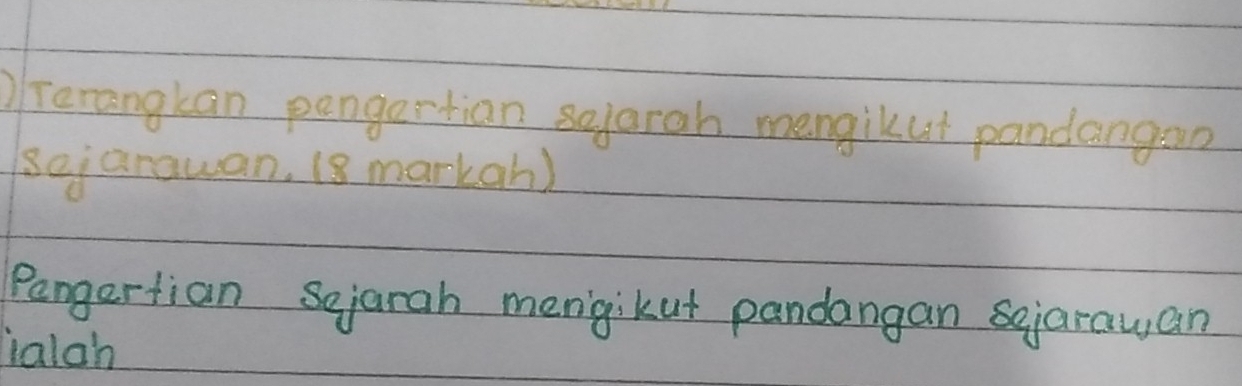 ) Terangkan pengertian sejarah mengikut pandangan
sejarawan. (8 markah)
Pengertian sejarah mengikut pandangan sejarawan
ialah